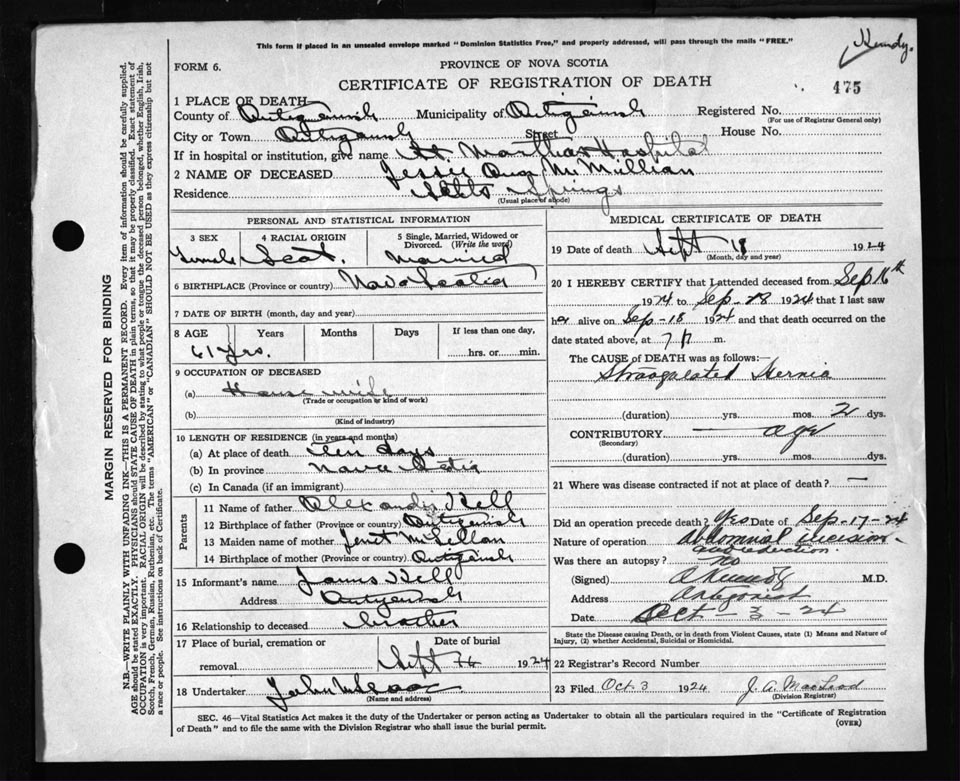 Kennedy.
This form if placed in an unsealed envelope marked "Dominion Statistics Free," and properly addressed, will pass through the mails "FREE."
FORM 6.
PROVINCE OF NOVA SCOTIA
CERTIFICATE OF REGISTRATION OF DEATH
475
1 PLACE OF DEATH
County of Antigonish Municipality of Antigonish Registered No.
(For use of Registrar General only)
City or Town Antigonish Street House No.
If in hospital or institution, give name St. Marthas Hospital
2 NAME OF DECEASED Jessie Ann McMillian
Residence Salts Springs
(Usual place of abode)
PERSONAL AND STATISTICAL INFORMATION
3 SEX 4 RACIAL ORIGIN 5 Single, Married, Widowed or Divorced. (Write the word)
Female Scot. Married
6 BIRTHPLACE (Province or country) Nova Scotia
7 DATE OF BIRTH (month, day and year)
8 AGE Years Months Days If less than one day,
61 yrs. hrs. or min.
9 OCCUPATION OF DECEASED
(a) House wife
(Trade or occupation or kind of work)
(b)
(Kind of industry)
10 LENGTH OF RESIDENCE (in years and months)
(a) At place of death ten days
(b) In province Nova Scotia
(c) In Canada (if an immigrant)
Parents
11 Name of father
12 Birthplace of father (Province or country) Antigonish
13 Maiden name of mother Jenet McLellan
14 Birthplace of mother (Province or country) Antigonish
15 Informant's name James
Address Antigonish
16 Relationship to deceased brother
17 Place of burial, cremation or removal Date of burial
Sept 1924
18 Undertaker John
(Name and address)
MEDICAL CERTIFICATE OF DEATH
19 Date of death Sept 18 1924
(Month, day and year)
20 I HEREBY CERTIFY that I attended deceased from Sep 16th
1924 to Sep-18 1924 that I last saw
her alive on Sep-18 1924 and that death occurred on
date stated above, at 7 P m.
The CAUSE of DEATH was as follows:—
Strangulated Hernia
(duration) yrs. mos. 2 dys.
CONTRIBUTORY — age
(Secondary)
(duration) yrs. mos. dys.
21 Where was disease contracted if not at place of death? —
Did an operation precede death? Yes Date of Sep-17-24
Nature of operation abdominal incision -
and reduction.
Was there an autopsy? no
(Signed) Kennedy M.D.
Address Antigonish
Date Oct - 3 - 24
State the Disease causing Death, or in death from Violent Causes, state (1) Means and Nature of
Injury, (2) whether Accidental, Suicidal or Homicidal.
22 Registrar's Record Number
23 Filed Oct. 3 1924 J. A. MacLeod
(Division Registrar)
SEC. 46—Vital Statistics Act makes it the duty of the Undertaker or person acting as Undertaker to obtain all the particulars required in the "Certificate of Registration
of Death" and to file the same with the Division Registrar who shall issue the burial permit.
(OVER)
MARGIN RESERVED FOR BINDING
N.B.—WRITE PLAINLY WITH UNFADING INK—THIS IS A PERMANENT RECORD. Every item of information should be carefully supplied.
AGE should be stated EXACTLY. PHYSICIANS should STATE CAUSE OF DEATH in plain terms, so that it may be properly classified. Exact statement of
OCCUPATION is very important. RACIAL ORIGIN will be described by stating to what people or tongue the deceased person belonged, whether English, Irish,
Scotch, French, German, Russian, Ruthenian, etc. The terms "AMERICAN" or "CANADIAN" SHOULD NOT BE USED as they express citizenship but not
a race or people. See instructions on back of Certificate.